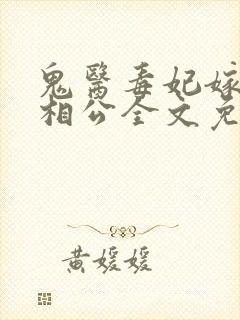 鬼醫毒妃嫁
相公全文免
黃媛媛